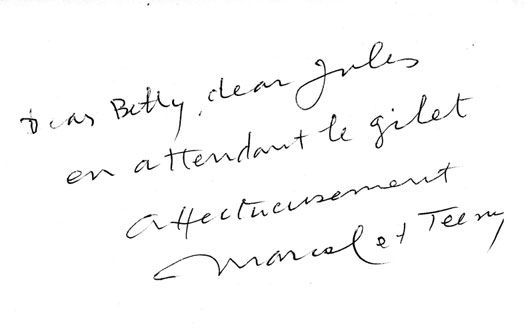 Dear Betty, dear Jules
en attendant le gilet
affectueusement
Marcel et Teeny